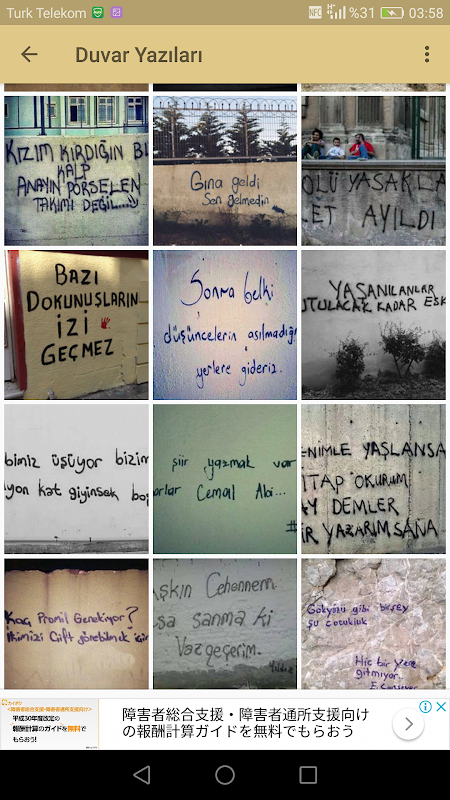 Turk Telekom
%31
03:58
Duvar Yazıları
KIZIM KIRDIĞIN Bİ
KALP
ANAYIN PORSELEN
TAKIMI DEĞİL...
Gına geldi
Sen gelmedin
ÖLÜ YASAKLA
ET AYILDI
BAZI
DOKUNUŞLARIN
İZİ
GEÇMEZ
Sonra belki
düşüncelerin asılmadığı
yerlere gideriz.
YAŞANILANLAR
UTULACAK KADAR ESK
bimiz üşüyor bizim
yon kat giyinsek boş
şiir yazmak var
orlar Cemal Abi...
#
ENİMLE YAŞLANSA
İTAP OKURUM
AY DEMLER
İR YAZARIM SANA
Kaç Promil Gerekiyor?
İkimizi Çift görebilmek için
Aşkın Cehennem
sa sanma ki
Vazgeçerim.
Yıldız
Gökyüzü gibi birşey
şu çocukluk
Hiç bir yere
gitmiyor.
E. Cansever
<障害者総合支援・障害者通所支援向け>
平成30年度改定の
報酬計算のガイドを無料で
もらおう!
障害者総合支援・障害者通所支援向け
の報酬計算ガイドを無料でもらおう